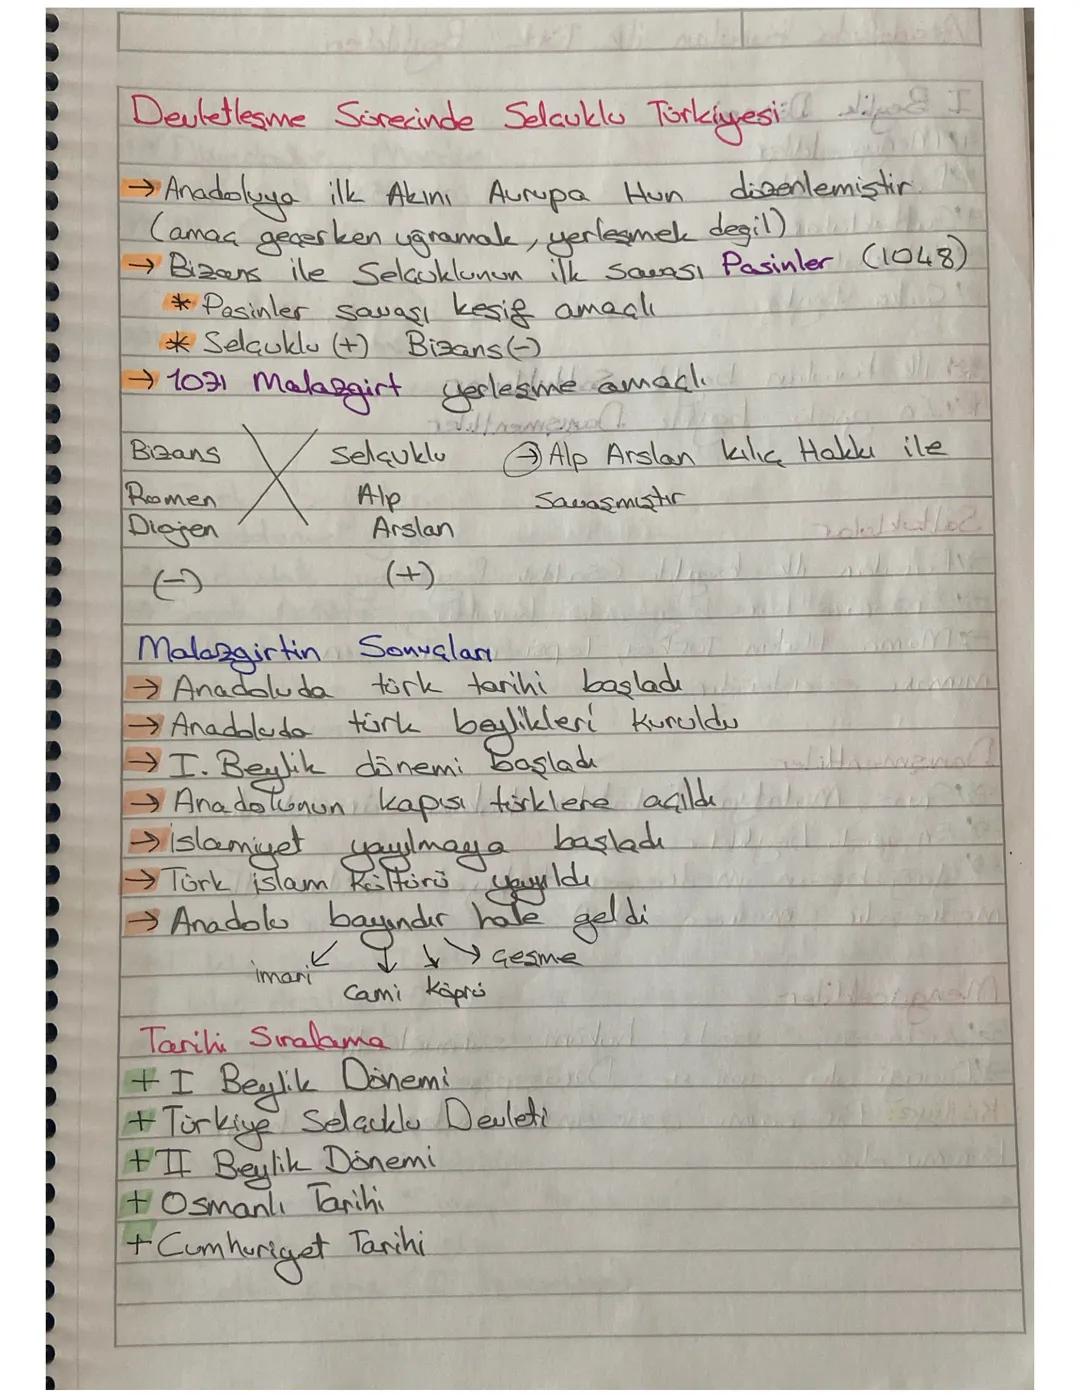 Devletleşme Sürecinde Selcuklu Türkiyesi
→ Anadoluya ilk Akını Avrupa Hun düzenlemiştir.
(amaç geçerken uğramak, yerleşmek degil)
→ Bizans ile Selçuklunun ilk savası Pasinler (1048)
* Pasinler savaşı keşif amaçlı
* Selçuklu (+) Bizans (-)
→ 1071 Malazgirt yerleşme amaçlı.
Bizans Selçuklu → Alp Arslan kılıç Hakkı ile
Romen Alp Savaşmıştır
Diojen Arslan
(-) (+)
Malazgirtin Sonuçları
→ Anadoluda türk tarihi başladı
→ Anadoluda türk beylikleri Kuruldu
→ I. Beylik dönemi başladı
→ Anadolunun kapısı türklere açıldı
→ islamiyet yayılmaya başladı
→ Türk islam Kültürü yayıldı
→ Anadolu bayındır hale geldi
imari ↙ ↓ ↘ → Çeşme
Cami Köprü
Tarihi Sıralama
+ I Beylik Dönemi
+ Türkiye Selçuklu Devleti
+ II Beylik Dönemi
+ Osmanlı Tarihi
+ Cumhuriyet Tarihi